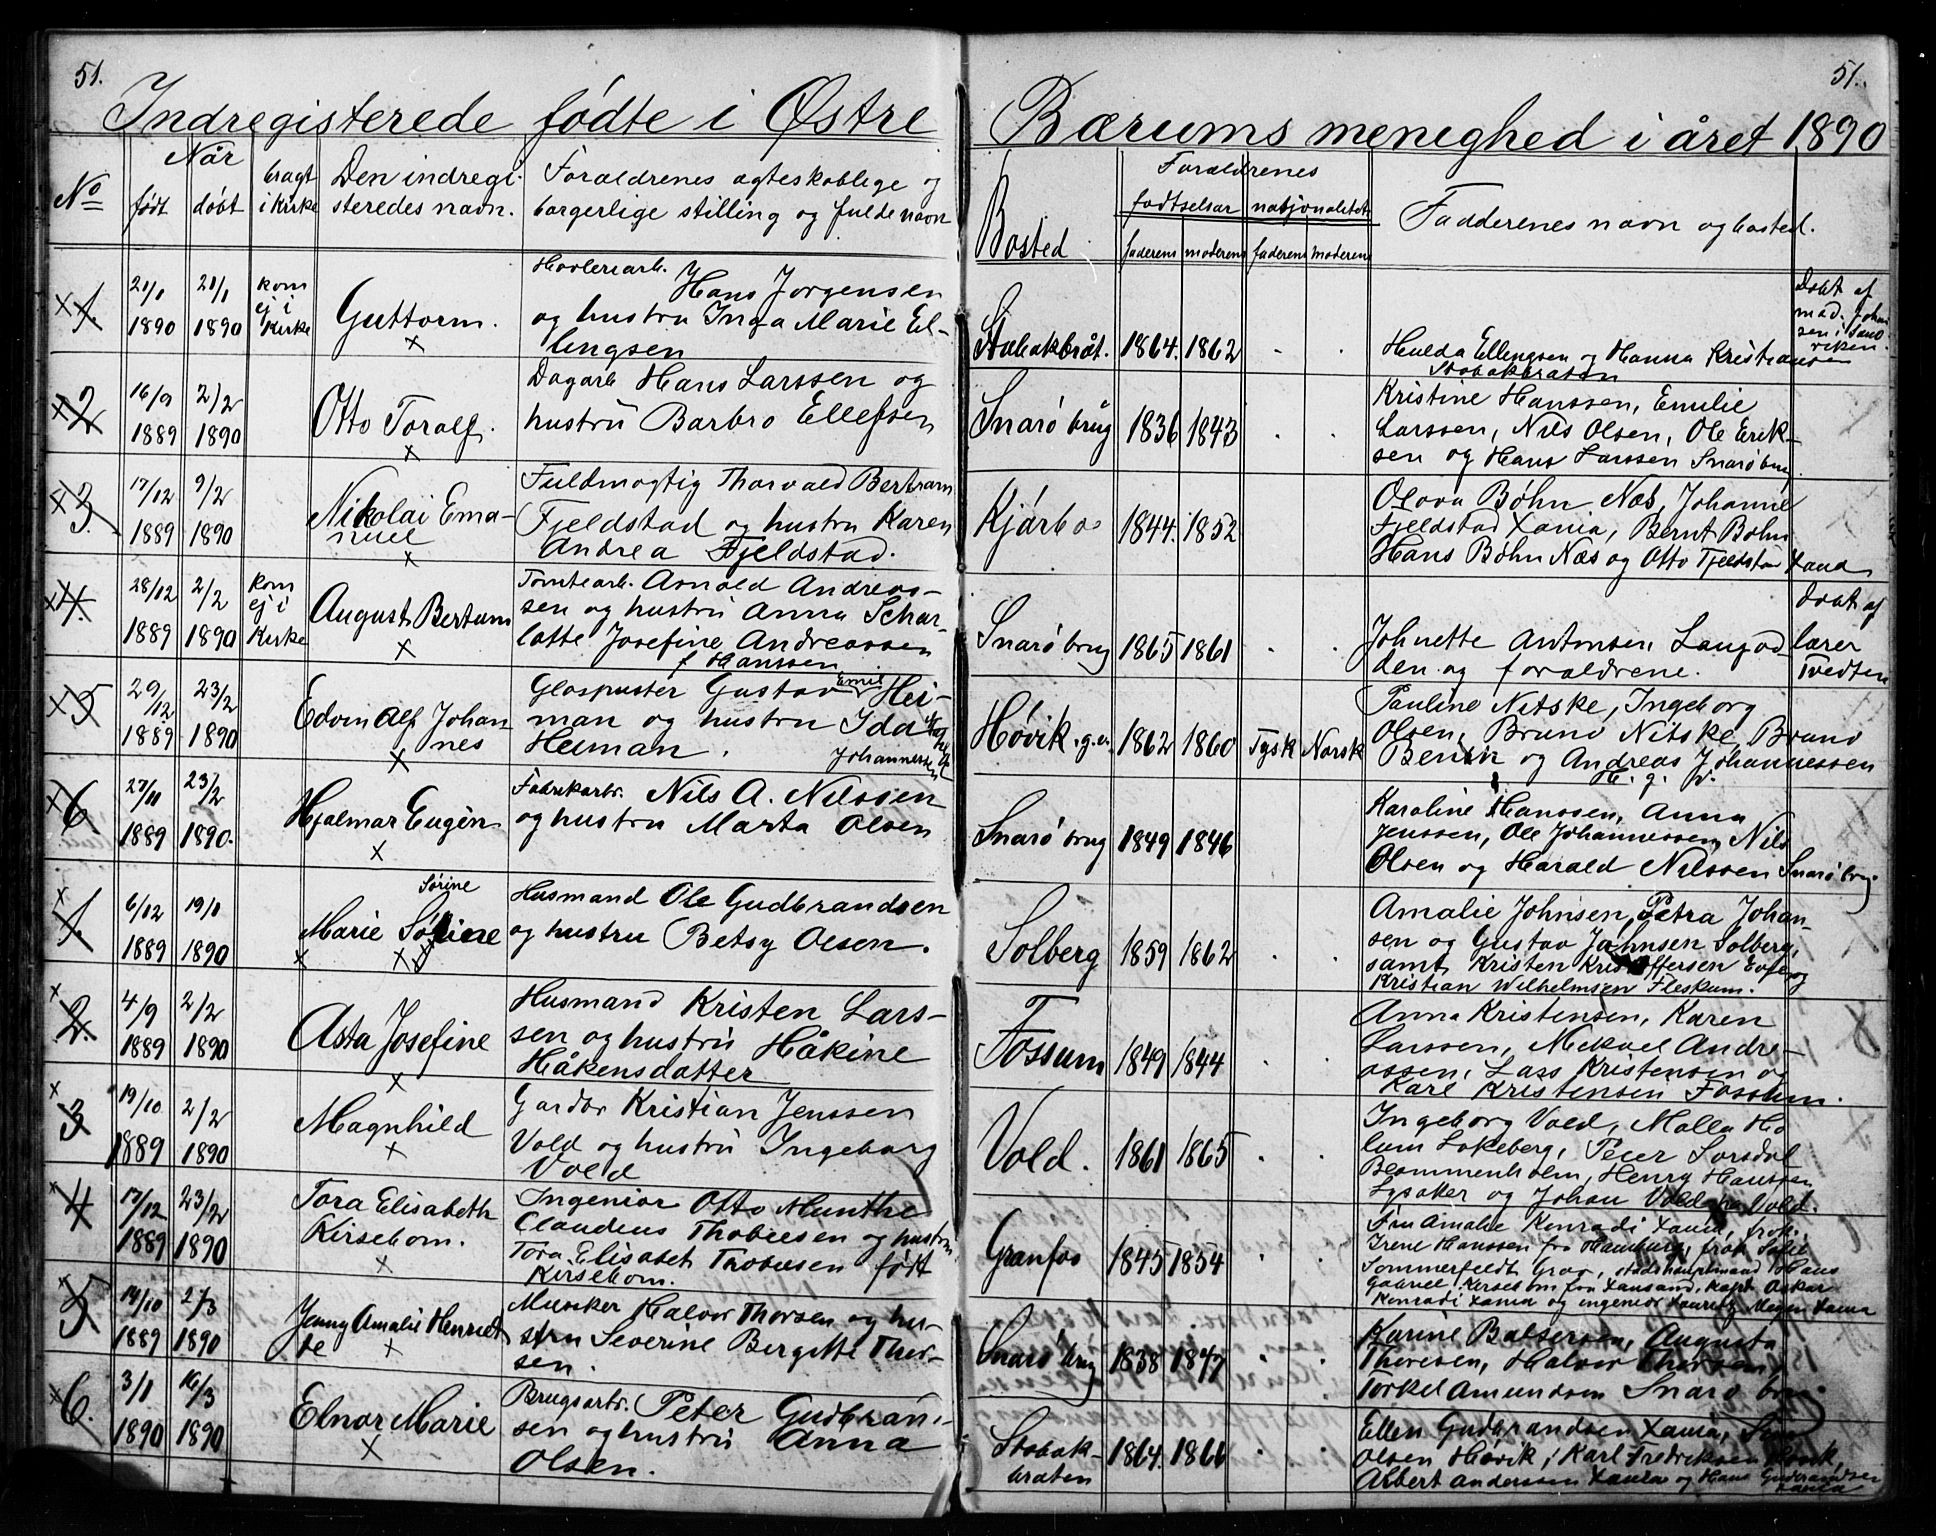 51.
51.
Indregisterede fødte i Østre Bærums menighed i året 1890
No
Når
født
døbt
bragt
i kirke
Den indregi-
steredes navn.
Foræaldrenes ægteskablige og
borgerlige stilling og fulde navn
Bosted
Forældrenes
fødselsår
nasjonalitet
faderens
moderens
faderens
moderens
Fadderenes navn og bosted.
1.
21/1
1890
21/1
1890
kom
ej i
Kirke
Guttorm.
Høvleriarb.
Hans Jørgensen
og hustru Inga Marie El-
lingsen
Stabakbråt.
1864.
1862
Hulda Ellingsen og Hanna Kristiansen
Stabakbraten
Døbt af
mad. Johan
sen i Sand
viken.
2
16/9
1889
2/2
1890
Otto Toralf.
Dagarb Hans Larssen og
hustru Barbro Ellefsen
Snarø brug
1836
1843
Kristine Hanssen, Emilie
Larssen, Nils Olsen, Ole Erik-
sen og Hans Larssen Snarø brug
3.
17/12
1889
9/2
1890
Nikolai Ema-
nuel
Fuldmægtig Thorvald Bertram
Fjeldstad og hustru Karen
Andrea Fjeldstad.
Kjørbo
1844.
1852
Olava Bøhn Næs, Johanne
Fjeldstad Xania, Bernt Bøhn
Hans Bøhn Næs og Otto Fjeldstad
4.
28/12
1889
2/2
1890
kom
ej i
Kirke
August Bertum
Tomtearb. Arnold Andreas-
sen og hustru Anna Schar-
lotte Josefine Andreassen
f Hanssen
Snarø brug
1865
1861
Johnette Antonsen Langod-
den og forældrene.
Døbt af
lærer
Tvedten
5
29/12
1889
23/2
1890
Edvin Alf Johan-
nes
Glaspuster Gustav Emil Hei-
man og hustru Ida
Heiman.
Johannessen
Høvik .g.v.
1862
1860
Tysk
Norsk
Pauline Nitske, Ingeborg
Olsen, Bruno Nitske, Bruno
og Andreas Johannessen
H. g. v.
6.
27/11
1889
23/2
1890.
Hjalmar Eugén
Fabrikarbr. Nils A. Nilssen
og hustru Marta Olsen
Snarø brug
1849
1846
Karoline Hanssen, Anna
Jenssen, Ole Johannessen, Nils
Olsen og Harald Nilssen Snarø brug.
1.
6/12
1889
19/1
1890
Sørine
Marie Sørine
Husmand Ole Gudbrandsen
og hustru Betsy Olsen.
Solberg
1859
1862
Amalie Johnsen, Petra Johan-
sen og Gustav Johnsen Solberg,
samt Kristen Kristoffersen Evje og
Kristian Wilhelmsen Fleskum.
2.
4/9
1889
2/2
1890
Asta Josefine
Husmand Kristen Lars-
sen og hustru Håkine
Håkensdatter
Fossum
1849
1844
Anna Kristensen, Karen
Larssen, Mikael Andre-
assen, Lars Kristensen og
Karl Kristensen Fossum.
3
19/10
1889
2/2
1890
Magnhild
Gardbr Kristian Jenssen
Vold og hustru Ingeborg
Vold
Vold.
1861
1865
Ingeborg Vold, Malla Ho-
lum Løkeberg, Peter Sørsdal
Blommenholm, Henry Hanssen
Lysaker og Johan Vold Vold.
4
17/12
1889
23/2
1890
Tora Elisabeth
Kirsebom.
Ingeniør Otto Munthe
Claudeus Thobiesen og hustru
Tora Elisabet Tobiesen født
Kirsebom.
Granfos
1845
1854
Fru Amalie Konradi Xania, frøk.
Irene Hanssen fra Hamburg, frøk Sofie
Sommerfeldt Grav, stadshauptmand Hans
Gabriel Kirsebom fra Xansand, kapt Oskar
Konradi Xania og ingeniør Lauritz Xania
5
14/10
1889
2/3
1890
Jenny Amalie Henriet-
te
Musiker Halvor Thorsen og hu-
stru Severine Bergitte Thor-
sen.
Snarø brug
1838
1847
Karine Balsersen, Augusta
Thoresen, Halvor Thorsen,
Torkel Amundsen Snarø brug.
6.
3/1
1890
16/3
1890
Elnar Marie
Brugsarbr. Peter Gudbran-
sen og hustru Anna
Olsen.
Stabak-
braten
1864.
1866
Ellen Gudbrandsen Xania,
Olsen Høvik, Karl Fredriksen Høvik,
Albert Anderssen Xania og Hans Gudbrandsen
Xania